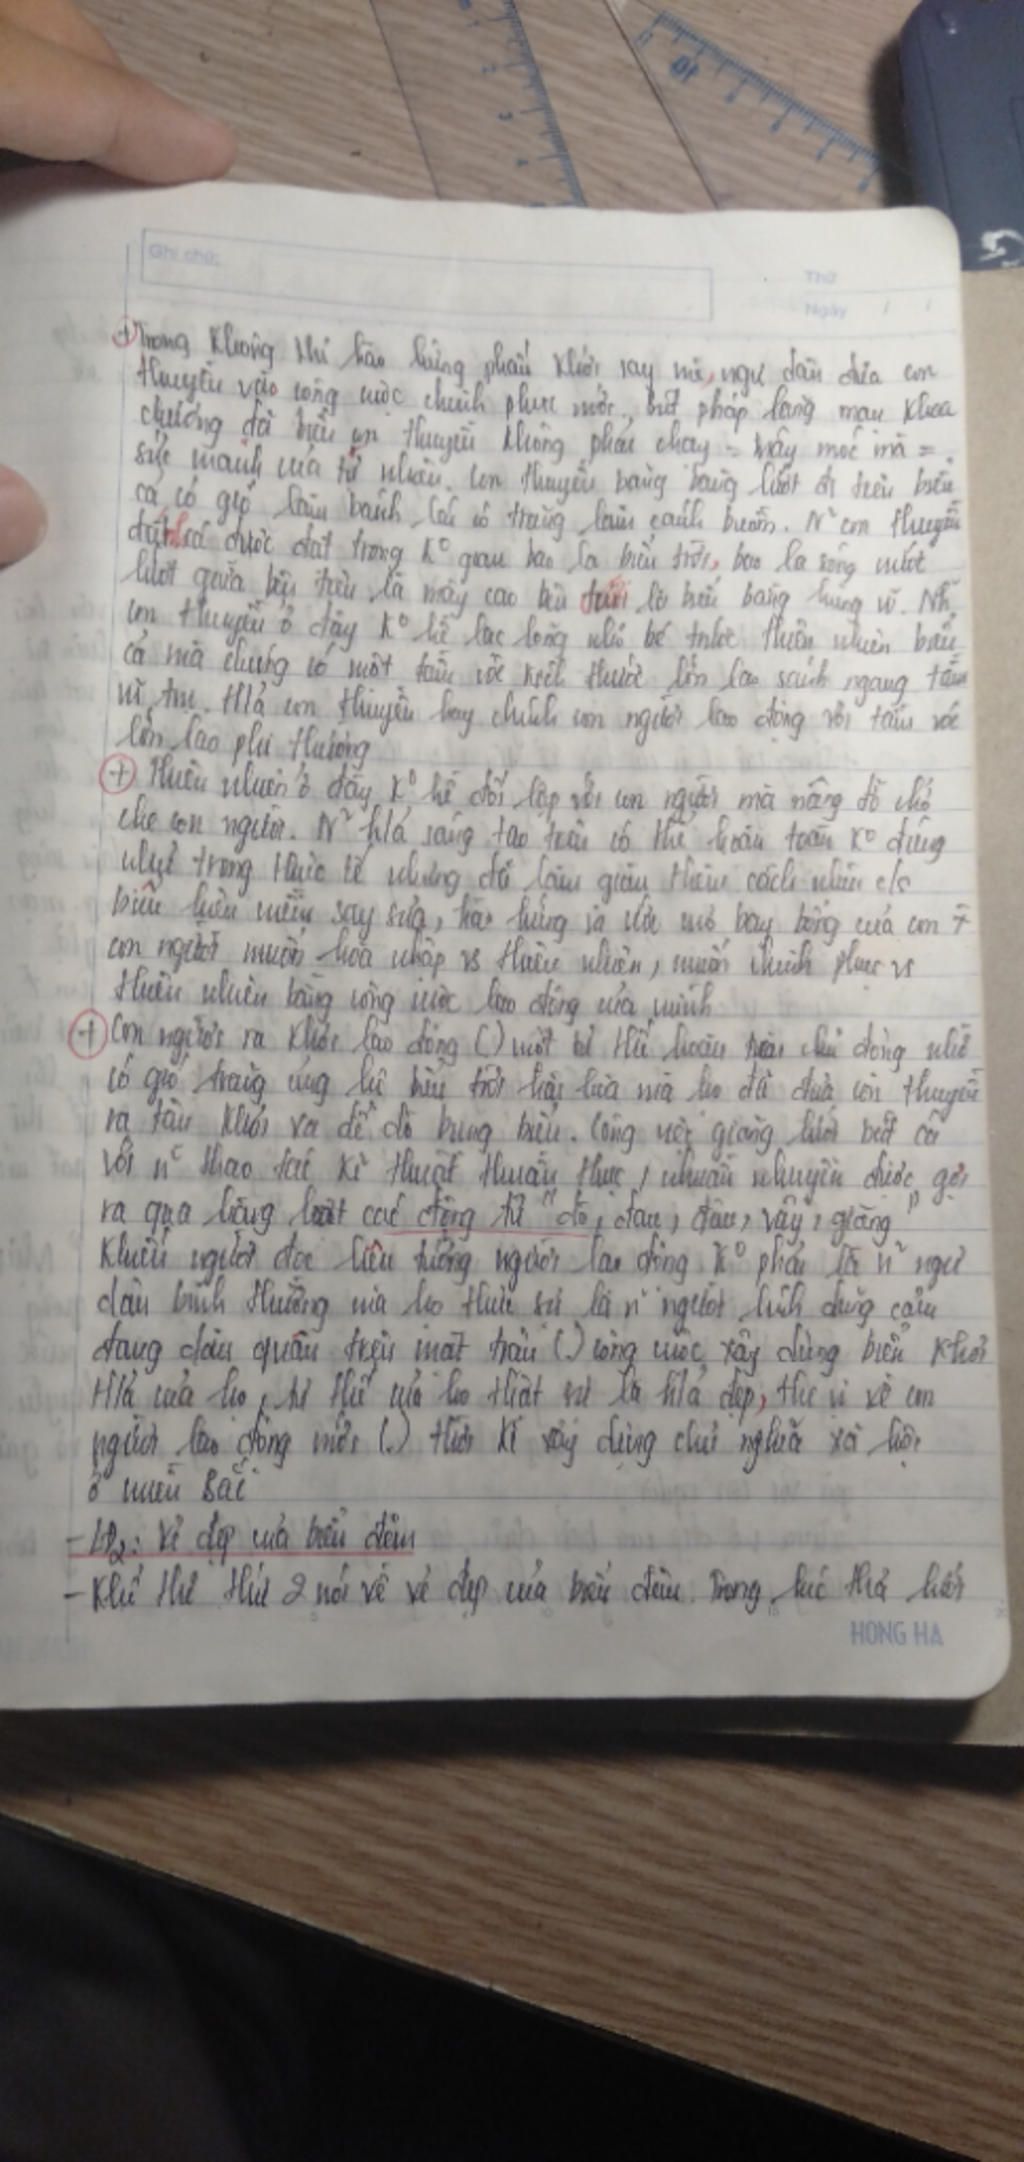 Ghi chú:
Thứ
Ngày / /
+ Trong không khí hào hứng phấn khởi say mê, ngư dân đưa con
thuyền vào công cuộc chinh phục mới. bút pháp lãng mạn khoa
chương đã biến con thuyền không phải chạy = máy móc mà =
sức mạnh của tự nhiên. con thuyền băng băng lướt đi trên biển
cả có gió làm bánh lái có trăng làm cánh buồm. N² con thuyền
đánh cá được đặt trong k° gian bao la biển trời, bao la sóng nước
lướt giữa bên trên là mây cao bên dưới là biển bằng hùng vĩ. Nh
con thuyền ở đây k° hề lạc lõng nhỏ bé trước thiên nhiên biển
cả mà chúng có một tầm vóc kích thước lớn lao sánh ngang tầm
vũ trụ. H/ả con thuyền hay chính con người lao động với tầm vóc
lớn lao phi thường
+ Thiên nhiên ở đây k° hề đối lập với con người mà nâng đỡ chở
che con người. N² h/ả sáng tạo trên có thể hoàn toàn k° đúng
như trong thực tế nhưng đã làm giàu thêm cách nhìn c/s
biểu hiện niềm say sưa, hào hứng và ước mơ bay bổng của con
con người muốn hòa nhập vs thiên nhiên, muốn chinh phục vs
thiên nhiên bằng công cuộc lao động của mình
+ Con người ra khơi lao động (.) một tư thế hoàn toàn chủ động nhờ
có gió trăng ủng hộ biển trời hài hòa mà họ đã đưa con thuyền
ra tận khơi xa để dò bụng biển. Công việc giăng lưới bắt cá
với n² thao tác kĩ thuật thuần thục, nhuần nhuyễn được gợi
ra qua hàng loạt các động từ "dò, đan, đậu, vây, giăng"
Khiến người đọc liên tưởng người lao động k° phải là n² ngư
dân bình thường mà họ thực sự là n² người lính dũng cảm
đang dàn quân trên mặt trận (.) công cuộc xây dựng biển khơi
H/ả của họ, tư thế của họ thật sự là h/ả đẹp, thú vị về con
người lao động mới (.) thời kì xây dựng chủ nghĩa xã hội
ở miền Bắc
- LĐ2: Vẻ đẹp của biển đêm
- Khổ thơ thứ 2 nói về vẻ đẹp của biển đêm. Trong lúc thả lưới
HONG HA